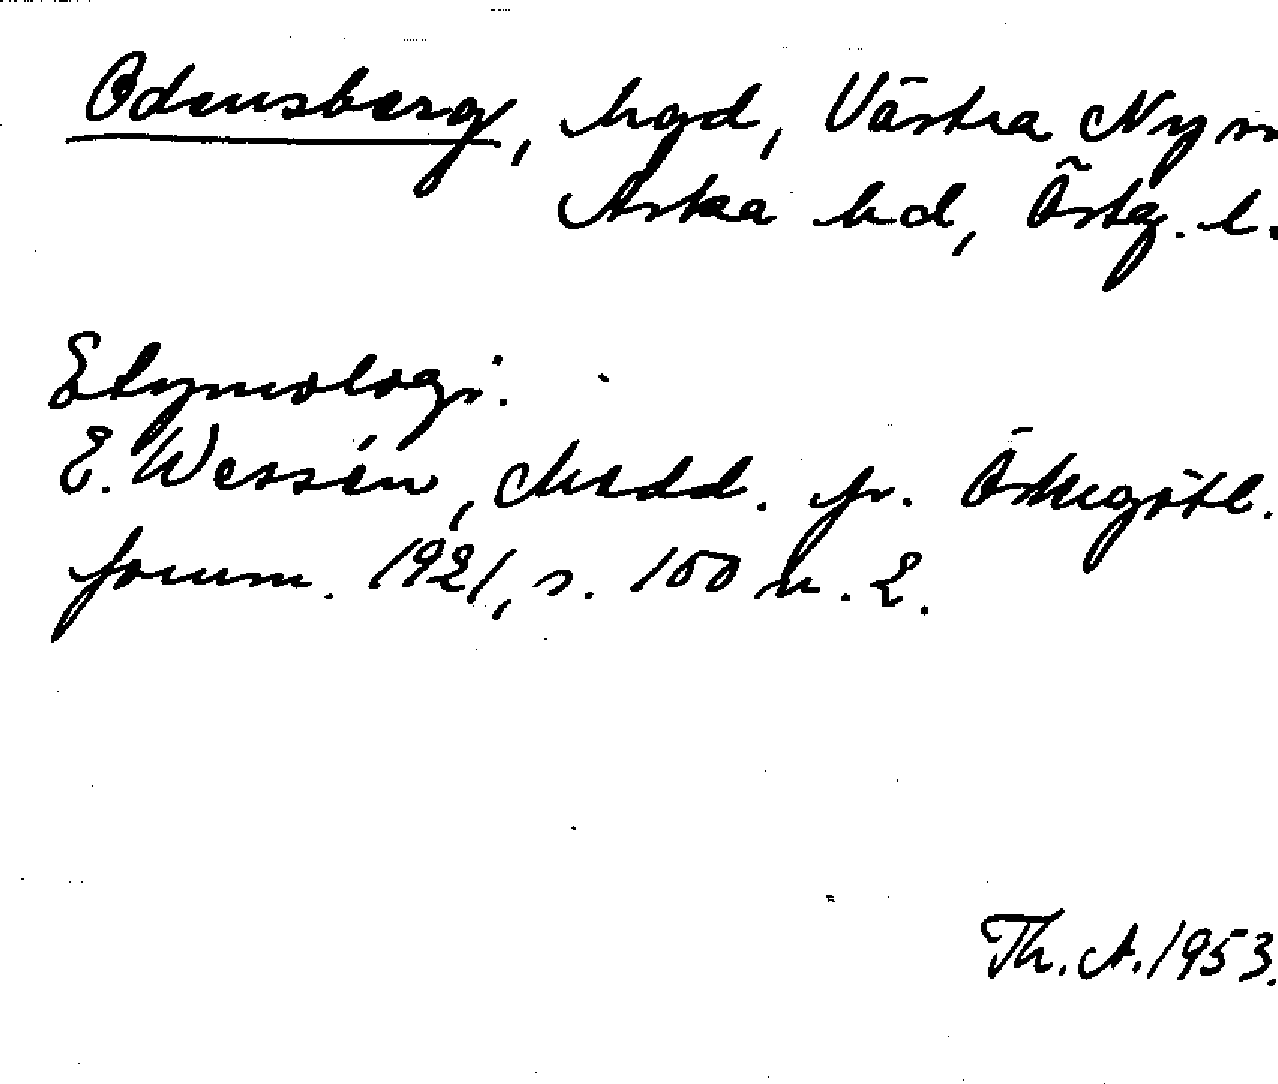 Odensberg, hgd, Västra Ny sn
Aska hd, Östg. l.
Etymologi:
E. Wessén, Medd. fr. Östergötl.
fornm. 1921, s. 100 n. 2.
Th. A. 1953.